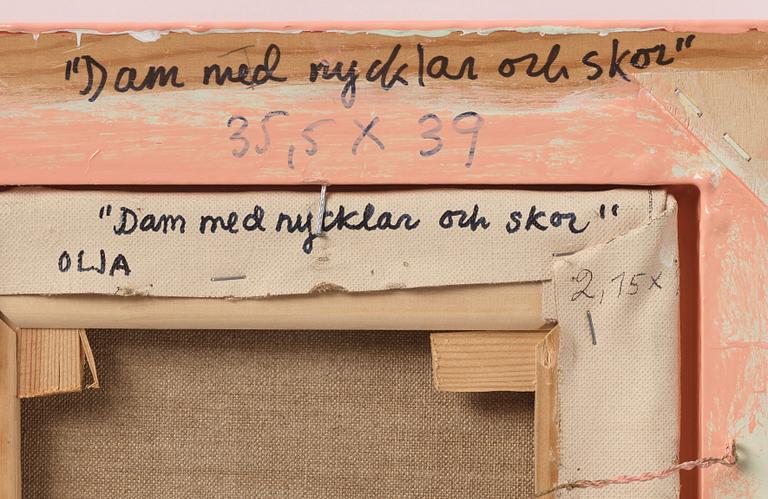 "Dam med nycklar och skor"
35,5 X 39
"Dam med nycklar och skor"
OLJA
2,15 x